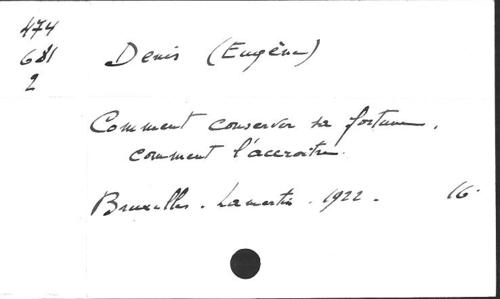 474
681
2
Denis (Eugène)
Comment conserver sa fortune,
comment l'accroitre.
Bruxelles. Lamertin. 1922. 16.